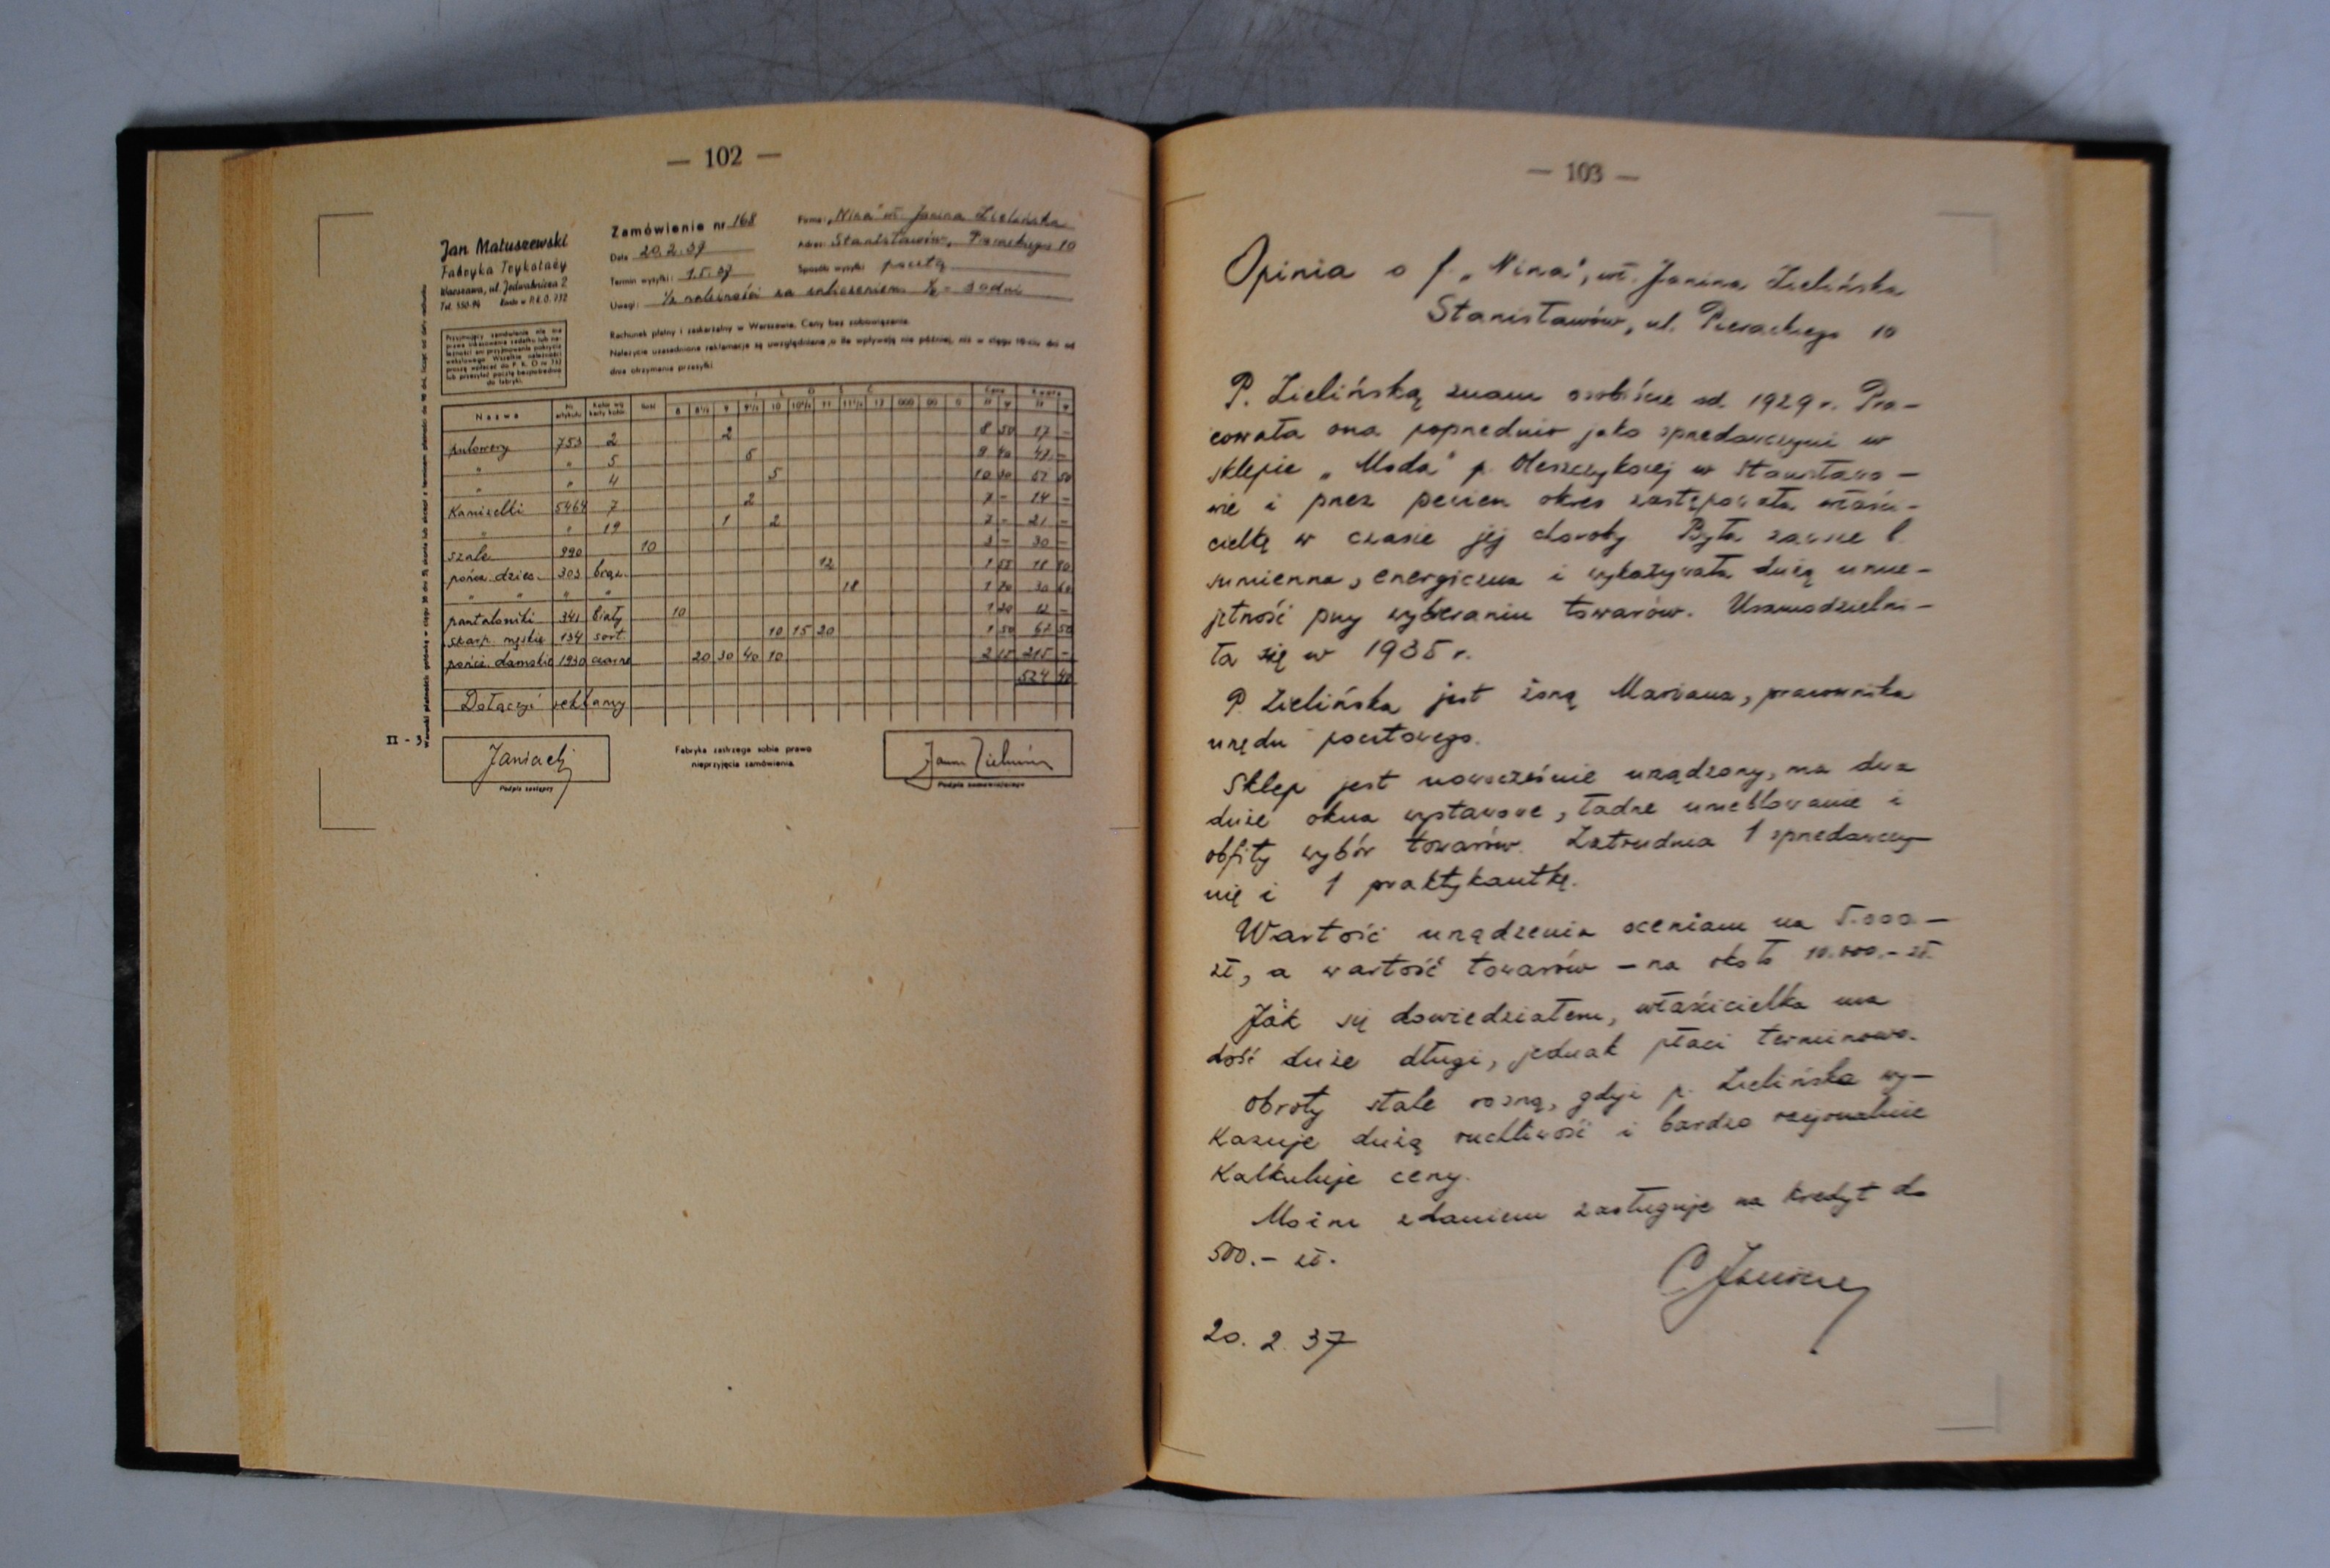 — 102 —
Jan Matuszewski
Fabryka Trykotaży
Warszawa, ul. Jedwabnicza 2
Tel. 550-94 Konto w P.K.O. 712
Zamówienie nr 168
Data 20.2.37
Termin wysyłki: 1.5.37
Uwagi: ½ należności za zaliczeniem ½ - 30 dni
Firma: „Nina" wł. Janina Zielińska
Adres: Stanisławów, Pierackiego 10
Sposób wysyłki: pocztą
Przyjmujący zamówienie nie ma
prawa inkasowania zadatku lub na-
leżności ani przyjmowania pokrycia
wekslowego. Wszelkie należności
proszę wpłacać do P. K. O nr 712
lub przesyłać pocztą bezpośrednio
do fabryki.
Rachunek płatny i zaskarżalny w Warszawie. Ceny bez zobowiązania.
Należycie uzasadnione reklamacje są uwzględniane, o ile wpływają nie później, niż w ciągu 10-ciu dni od
dnia otrzymania przesyłki
I L O Ś Ć
Nazwa Nr artykułu Kolor wg karty kolor. Ilość 8 8½ 9 9½ 10 10½ 11 11½ 12 000 00 0 Cena zł gr Kwota zł gr
pulowery 753 2 2 8 50 17 —
" " 5 5 9 40 47 —
" " 4 5 10 30 51 50
Kamizelki 5464 7 2 7 - 14 —
" " 19 1 2 7 - 21 —
szale 990 10 3 - 30 —
pończ. dziec. 303 brąz. 12 1 55 18 60
" " " " 18 1 70 30 60
pantaloniki 341 biały 10 1 20 12 —
skarp. męskie 134 sort. 10 15 20 1 50 67 50
pończ. damskie 1930 czarne 20 30 40 10 2 15 215 —
524 40
Dołączyć reklamy
II - 3
Janiach
Podpis zastępcy
Fabryka zastrzega sobie prawo
nieprzyjęcia zamówienia.
Podpis zamawiającego
— 103 —
Opinia o f. „Nina", wł. Janina Zielińska
Stanisławów, ul. Pierackiego 10
P. Zielińską znam osobiście od 1929 r. Pra-
cowała ona poprzednio jako sprzedawczyni w
sklepie „Moda" p. Oleszczykowej w Stanisławo-
wie i przez pewien okres zastępowała właści-
cielkę w czasie jej choroby. Była zawsze b.
sumienna, energiczna i wykazywała dużą umie-
jętność przy wybieraniu towarów. Usamodzielni-
ła się w 1935 r.
P. Zielińska jest żoną Mariana, pracownika
urzędu pocztowego.
Sklep jest nowocześnie urządzony, ma dwa
duże okna wystawowe, ładne umeblowanie i
obfity wybór towarów. Zatrudnia 1 sprzedawczy-
nię i 1 praktykantkę.
Wartość urządzenia oceniam na 5.000 —
zł, a wartość towarów — na około 10.000.— zł.
Jak się dowiedziałem, właścicielka ma
dość duże długi, jednak płaci terminowo.
Obroty stale rosną, gdyż p. Zielińska wy-
kazuje dużą ruchliwość i bardzo racjonalnie
kalkuluje ceny.
Moim zdaniem zasługuje na kredyt do
500.— zł.
20. 2. 37